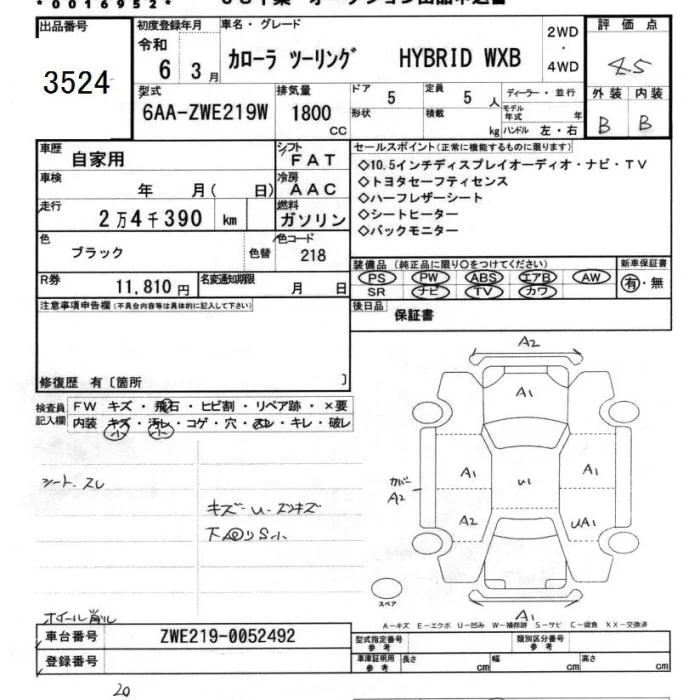 *0016952*
出品番号
3524
初度登録年月
令和
6 3月
車名・グレード
カローラ ツーリング HYBRID WXB
2WD
・
4WD
評価点
4.5
外装 内装
B B
型式
6AA-ZWE219W
排気量
1800
CC
ドア
5
定員
5 人
形状
積載
kg
ディーラー・並行
モデル年式 年
ハンドル 左・右
車歴
自家用
シフト
FAT
車検
年 月( 日)
冷房
AAC
走行
2万4千390 km
燃料
ガソリン
色
ブラック
色替
色コード
218
R券
11,810円
名変通知期限
月 日
セールスポイント(正常に機能するものに限ります)
◇10.5インチディスプレイオーディオ・ナビ・TV
◇トヨタセーフティセンス
◇ハーフレザーシート
◇シートヒーター
◇バックモニター
装備品(純正品に限り○をつけてください)
PS PW ABS エアB AW
SR ナビ TV カワ
新車保証書
有・無
後日品
保証書
注意事項申告欄(不具合内容等は具体的に記入して下さい)
修復歴 有〔箇所 〕
検査員
記入欄
FW キズ・飛石・ヒビ割・リペア跡・×要
内装 キズ・汚レ・コゲ・穴・スレ・キレ・破レ
小 小
シート. スレ
キズ・U・スリキズ
下回りS小
ホイール削レ
A2
A1
A1
U1
A1
カバー
A2
A2
UA1
A1
スペア
A-キズ E-エクボ U-凹み W-補修跡 S-サビ C-腐食 XX-交換済
車台番号
ZWE219-0052492
登録番号
型式指定番号
参考
類別区分番号
参考
車庫証明用
参考
長さ cm
幅 cm
高さ cm
20